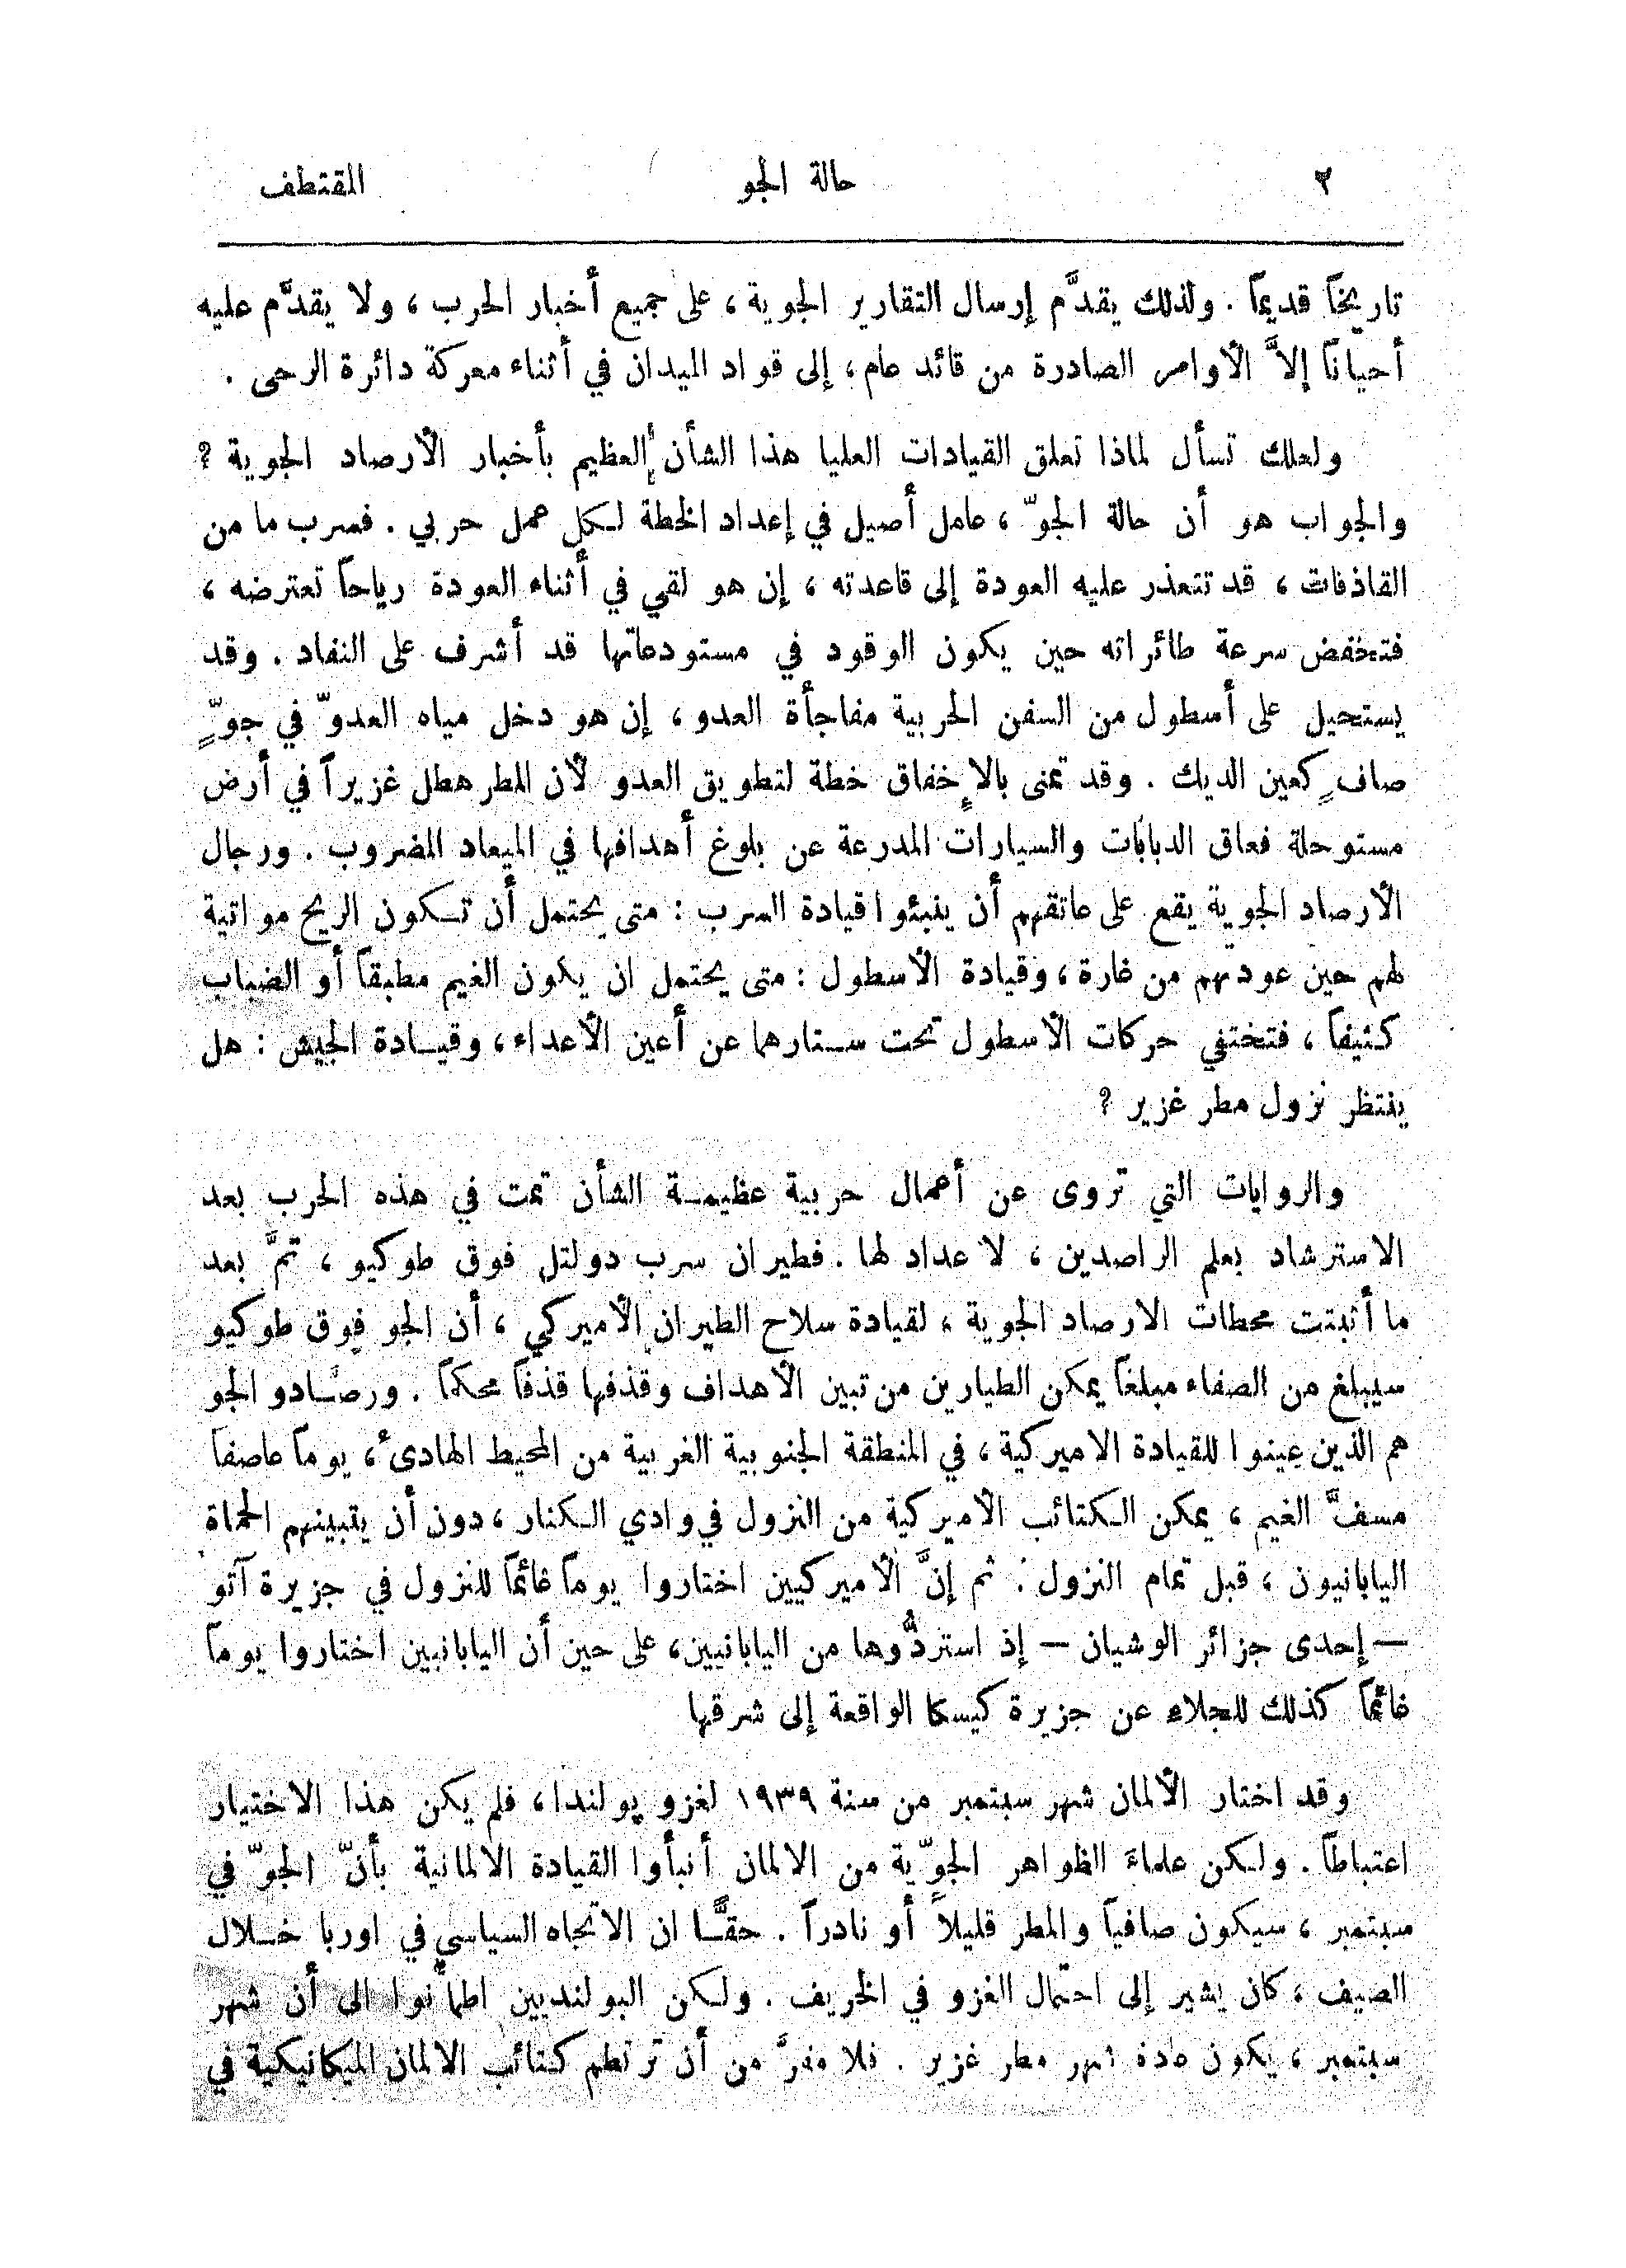 ٢ حالة الجو المقتطف
تاريخاً قديماً . ولذلك يقدَّم إرسال التقارير الجوية ، على جميع أخبار الحرب ، ولا يقدَّم عليه
أحياناً إلاَّ الأوامر الصادرة من قائد عام ، إلى قواد الميدان في أثناء معركة دائرة الرحى .
ولعلك تسأل لماذا تعلق القيادات العليا هذا الشأن العظيم بأخبار الأرصاد الجوية ؟
والجواب هو أن حالة الجوّ ، عامل أصيل في إعداد الخطة لكل عمل حربي . فسرب ما من
القاذفات ، قد تتعذر عليه العودة إلى قاعدته ، إن هو لقي في أثناء العودة رياحاً تعترضه ،
فتخفض سرعة طائراته حين يكون الوقود في مستودعاتها قد أشرف على النفاد . وقد
يستحيل على أسطول من السفن الحربية مفاجأة العدو ، إن هو دخل مياه العدوّ في جوٍّ
صافٍ كعين الديك . وقد تمنى بالإخفاق خطة لتطويق العدو لأن المطر هطل غزيراً في أرض
مستوحلة فعاق الدبابات والسيارات المدرعة عن بلوغ أهدافها في الميعاد المضروب . ورجال
الأرصاد الجوية يقع على عاتقهم أن ينبئوا قيادة السرب : متى يحتمل أن تكون الريح مواتية
لهم حين عودتهم من غارة ، وقيادة الأسطول : متى يحتمل ان يكون الغيم مطبقاً أو الضباب
كثيفاً ، فتختفي حركات الأسطول تحت ستارهما عن أعين الأعداء ، وقيادة الجيش : هل
ينتظر نزول مطر غزير ؟
والروايات التي تروى عن أعمال حربية عظيمة الشأن تمت في هذه الحرب بعد
الاسترشاد بعلم الراصدين ، لا عداد لها . فطيران سرب دولتل فوق طوكيو ، تمَّ بعد
ما أثبتت محطات الارصاد الجوية ، لقيادة سلاح الطيران الأميركي ، أن الجو فوق طوكيو
سيبلغ من الصفاء مبلغاً يمكن الطيارين من تبين الأهداف وقذفها قذفاً محكماً . ورصَّادو الجو
هم الذين عينوا للقيادة الاميركية ، في المنطقة الجنوبية الغربية من المحيط الهادئ ، يوماً عاصفاً
مسفَّ الغيم ، يمكن الكتائب الأميركية من النزول في وادي الكنار ، دون أن يتبينهم الحماة
اليابانيون ، قبل تمام النزول . ثم إنَّ الأميركيين اختاروا يوماً غائماً للنزول في جزيرة آتو
— إحدى جزائر الوشيان — إذ استردُّوها من اليابانيين ، على حين أن اليابانيين اختاروا يوماً
غائماً كذلك للجلاء عن جزيرة كيسكا الواقعة إلى شرقها
وقد اختار الألمان شهر سبتمبر من سنة ١٩٣٩ لغزو پولندا ، فلم يكن هذا الاختيار
اعتباطاً . ولكن علماءَ الظواهر الجوّية من الالمان أنبأوا القيادة الالمانية بأنّ الجوّ في
سبتمبر ، سيكون صافياً والمطر قليلاً أو نادراً . حقًّا ان الاتجاه السياسي في اوربا خلال
الصيف ، كان يشير إلى احتمال الغزو في الخريف . ولكن البولنديين اطمأنوا الى أن شهر
سبتمبر ، يكون عادة شهر مطر غزير . فلا مفرَّ من أن ترتطم كتائب الالمان الميكانيكية في